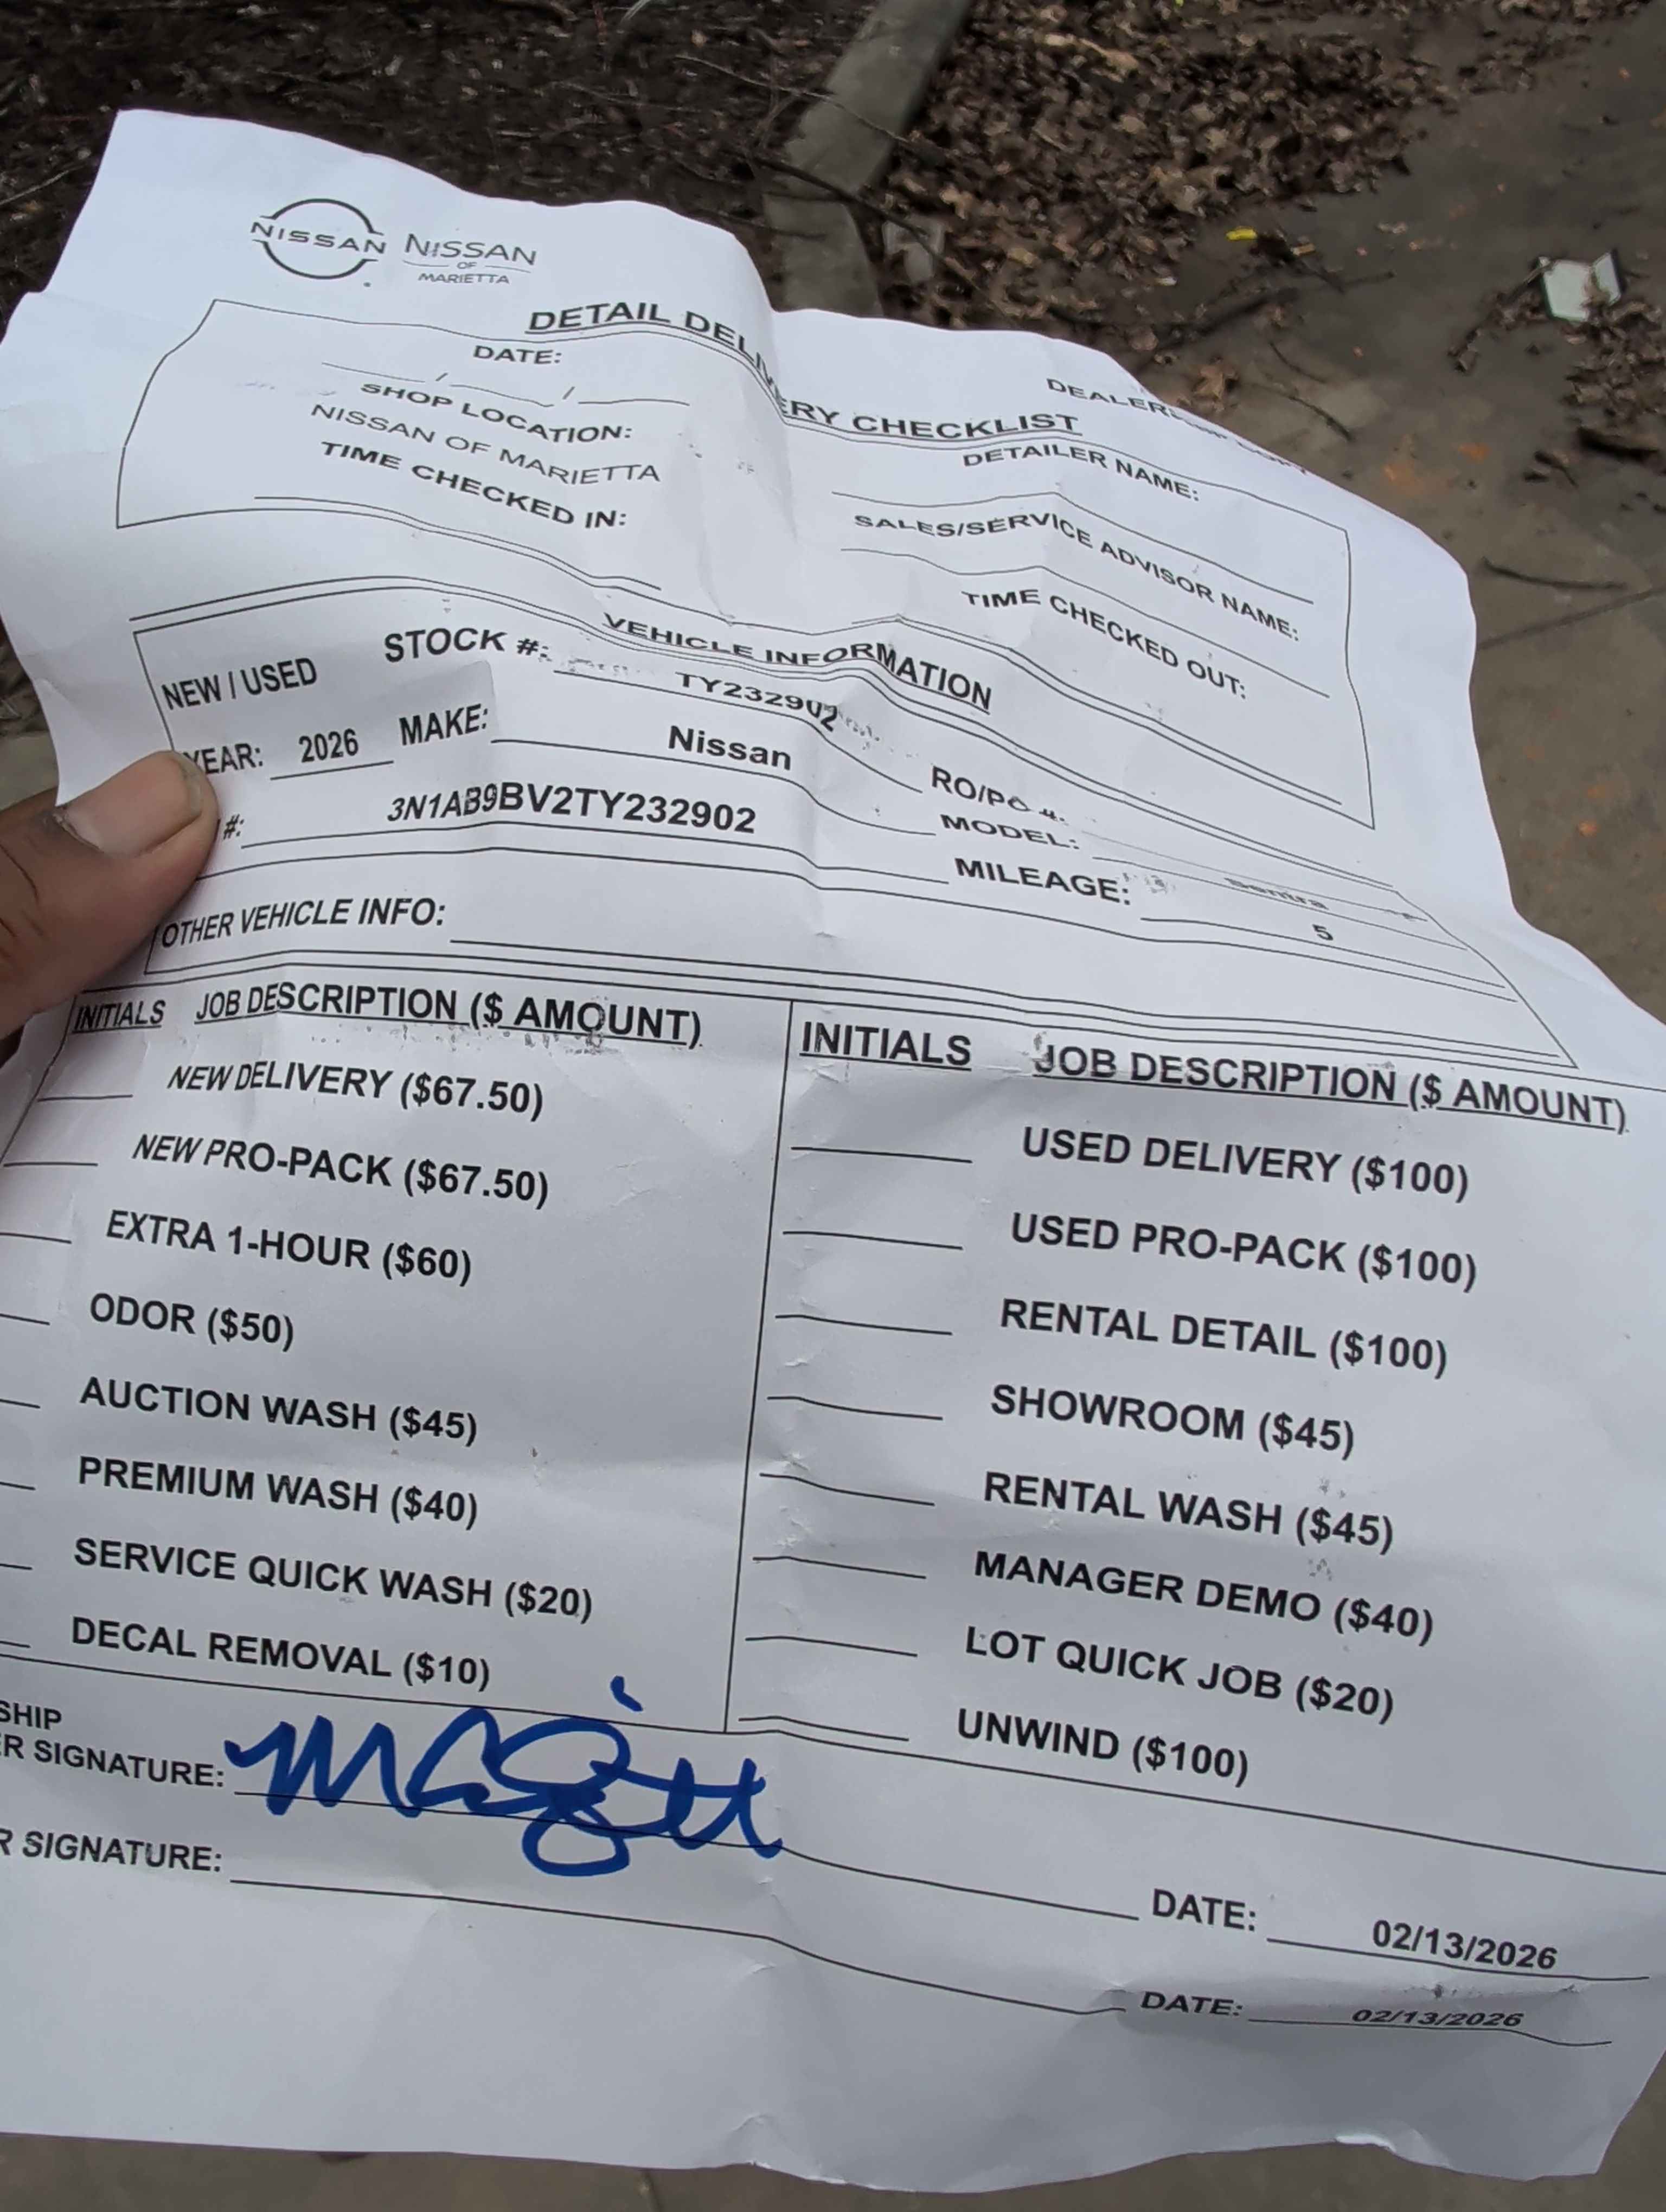 NISSAN NISSAN
OF
MARIETTA
DETAIL DELIVERY CHECKLIST
DATE:
/ /
SHOP LOCATION:
NISSAN OF MARIETTA
TIME CHECKED IN:
DETAILER NAME:
SALES/SERVICE ADVISOR NAME:
TIME CHECKED OUT:
VEHICLE INFORMATION
NEW / USED STOCK #: TY232902 RO/PO #:
YEAR: 2026 MAKE: Nissan MODEL: Sentra
#: 3N1AB9BV2TY232902 MILEAGE: 5
OTHER VEHICLE INFO:
INITIALS JOB DESCRIPTION ($ AMOUNT)
NEW DELIVERY ($67.50)
NEW PRO-PACK ($67.50)
EXTRA 1-HOUR ($60)
ODOR ($50)
AUCTION WASH ($45)
PREMIUM WASH ($40)
SERVICE QUICK WASH ($20)
DECAL REMOVAL ($10)
INITIALS JOB DESCRIPTION ($ AMOUNT)
USED DELIVERY ($100)
USED PRO-PACK ($100)
RENTAL DETAIL ($100)
SHOWROOM ($45)
RENTAL WASH ($45)
MANAGER DEMO ($40)
LOT QUICK JOB ($20)
UNWIND ($100)
SHIP
ER SIGNATURE: DATE: 02/13/2026
R SIGNATURE: DATE: 02/13/2026